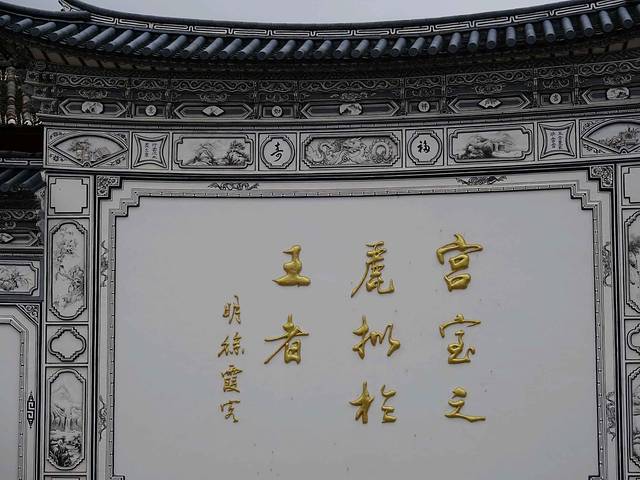 福
寿
宫室之
麗拟於
王者
明徐霞客